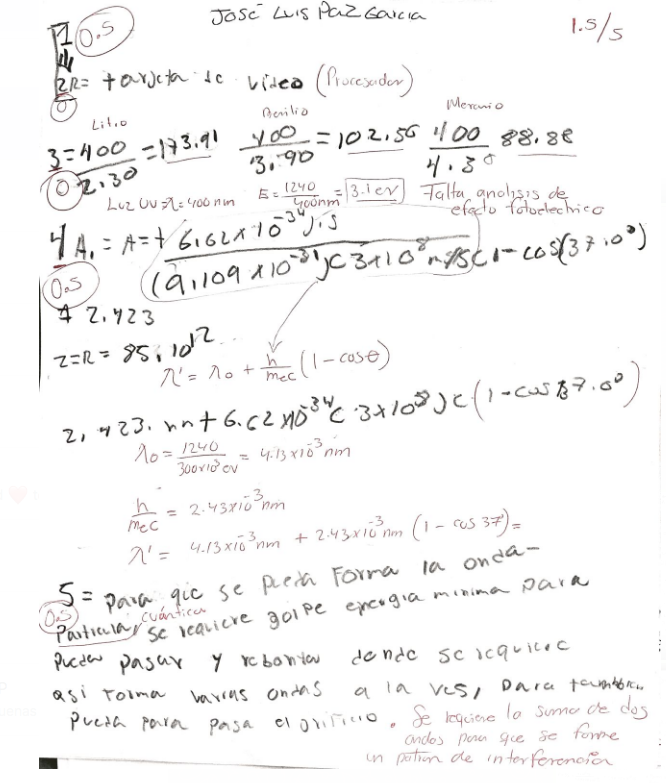 José Luis Paz Garcia
1.5/5
1
0.5
2R= tarjeta de video (Procesador)
0
Litio Berilio Mercurio
3=400/2.30=173.91 400/3.90=102.56 400/4.50 88.88
0
Luz UV=λ=400nm E=1240/400nm=3.1ev Falta analisis de
efecto fotoelectrico
4 A.= A=+ 6.62x10^-34 J.s / (9.109x10^-31)(3x10^8 m/s (1-cos(37.0°)
0.5
2.423
2=R= 85.10^12
λ'=λo+h/mec(1-cosθ)
2,423.nn+6.62x10^-34(3x10^8)c(1-cos 37.0°)
λo=1240/300x10^3ev=4.13x10^-3 nm
h/mec=2.43x10^-3 nm
λ'= 4.13x10^-3 nm + 2.43x10^-3 nm (1-cos 37°)=
5= para que se pueda Forma la onda-
0.5 cuántica
Particula, se requiere golpe energia minima para
pueda pasar y rebonta donde se requiere
asi forma varias ondas a la ves, para tambien
pueda para pasa el orificio. Se requiere la suma de dos
ondas para que se forme
un patron de interferencia